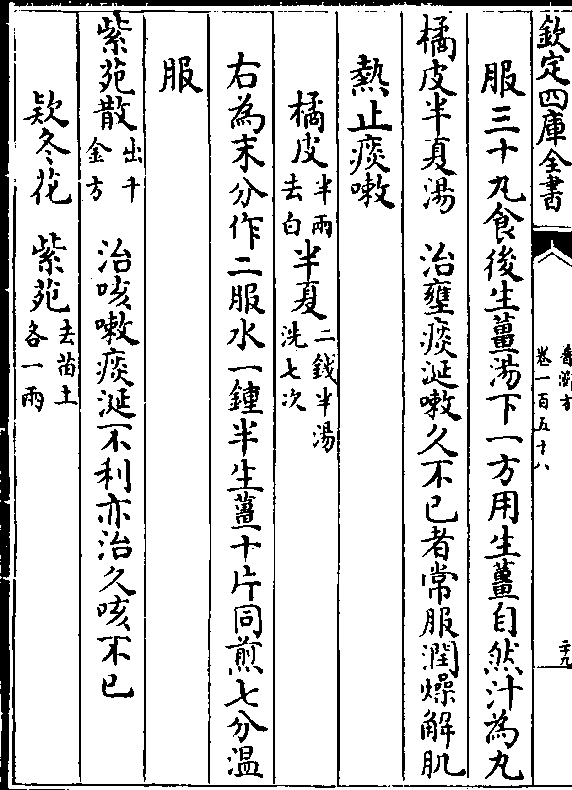 欽定四庫全書
普濟方
卷一百五十八
二十九
服三十丸食後生薑湯下一方用生薑自然汁為丸
橘皮半夏湯　治壅痰涎嗽久不已者常服潤燥解肌
熱止痰嗽
橘皮半兩去白半夏二錢半湯洗七次
右為末分作二服水一鍾半生薑十片同煎七分溫
服
紫菀散出千金方　治咳嗽痰涎不利亦治久咳不已
欵冬花　紫菀去苗土各一兩